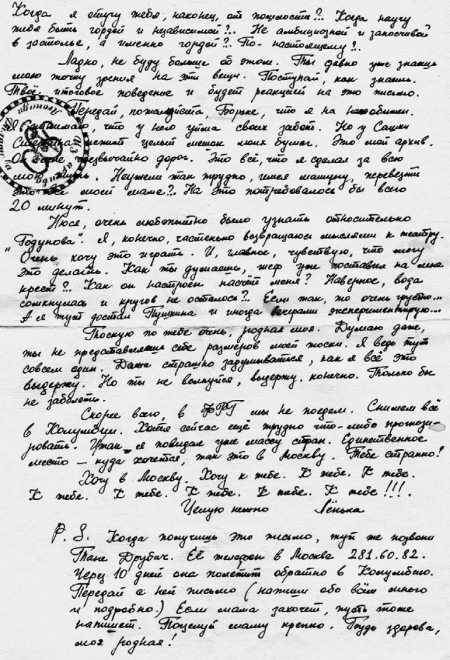 Когда я отучу тебя, наконец, от пошлости?.. Когда научу
тебя быть гордой и независимой?.. Не амбициозной и заносчивой
в застолье, а именно гордой?.. По-настоящему?..
Ладно, не буду больше об этом. Ты давно уже знаешь
мою точку зрения на эти вещи. Поступай, как знаешь.
Твоё итоговое поведение и будет реакцией на это письмо.
Передай, пожалуйста, Борьке, что я на
Я понимаю, что у него уйма своих забот. Но у Сашки
лежит целый мешок моих бумаг. Это мой архив.
чрезвычайно дорог. Это всё, что я сделал за всю
мою жизнь. Неужели так трудно, имея машину, перевезти
это всё моей маме?.. На это потребовалось бы всего
20 минут.
Нюся, очень любопытно было узнать относительно
"Годунова". Я, конечно, частенько возвращаюсь мыслями к театру.
Очень хочу это играть. И, главное, чувствую, что могу
это делать. Как ты думаешь, шеф уже поставил на мне
крест?.. Как он настроен насчёт меня? Наверное, вода
сомкнулась и кругов не осталось?.. Если так, то очень грустно...
А я тут достал Пушкина и иногда вечерами экспериментирую...
Тоскую по тебе очень, родная моя. Думаю даже,
ты не представляешь себе размеров моей тоски. Я ведь тут
совсем один. Даже страшно задумываться, как я всё это
выдержу. Но ты не волнуйся, выдержу, конечно. Только бы
не заболеть.
Скорее всего, в ФРГ мы не поедем. Снимем всё
в Колумбии. Хотя сейчас ещё трудно что-либо прогнози-
ровать. Итак, я повидал уже массу стран. Единственное
место – куда хочется, так это в Москву. Тебе странно?
Хочу в Москву. Хочу к тебе. К тебе. К тебе.
К тебе. К тебе. К тебе. К тебе. К тебе!!!.
Целую нежно Лёнька
P.S. Когда получишь это письмо, тут же позвони
Тане Друбич. Её телефон в Москве 281.60.82.
Через 10 дней она полетит обратно в Колумбию.
Передай с ней письмо (напиши обо всём много
и подробно.) Если мама захочет, пусть тоже
напишет. Поцелуй маму крепко. Будь здорова,
моя родная!